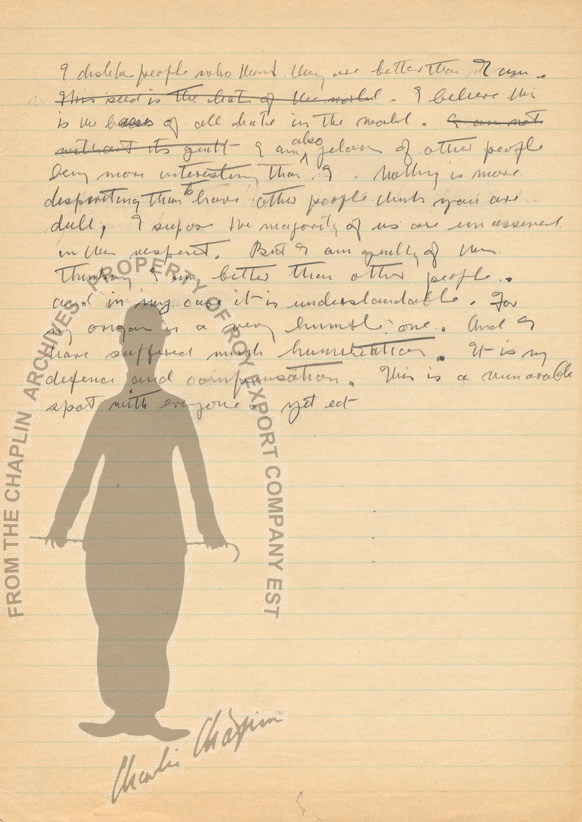 I dislike people who think they are better than I am.
This seed is the hate of the world. I believe this
is the bases of all hate in the world. I am not
without its guilt I am also jelous of other people
being more interesting than I. Nothing is more
dispiriting than to have other people think you are
dull, I supose the majority of us are
in this respect. But I am guilty of this
thinking I am better than other people.
and in my case it is understandable. For
my origan is a very humble one. And I
have suffered much humiliation. It is my
defence and compensation. This is a
spot with everyone. yet
FROM THE CHAPLIN ARCHIVES - PROPERTY OF ROY EXPORT COMPANY EST
Charlie Chaplin™